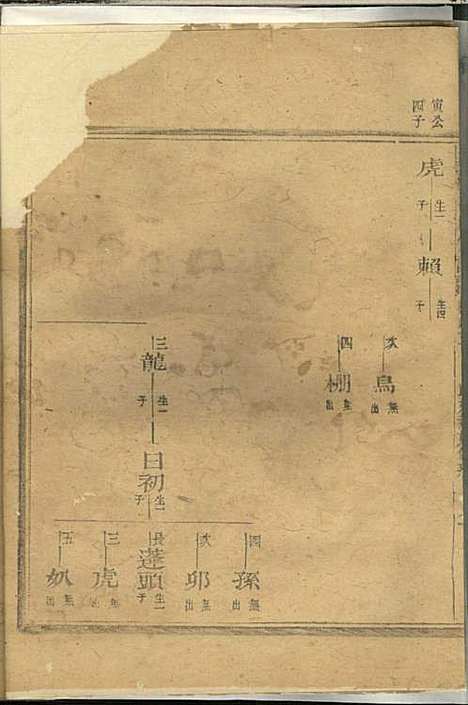 寅公
四子
虎
生一
子
賴
生四
子
次
鳥
無
出
四
栅
無
出
三
龍
生一
子
日初
生一
子
四
孫
無
出
次
卯
無
出
長
蓬頭
生一
子
三
虎
無
出
五
奴
無
出